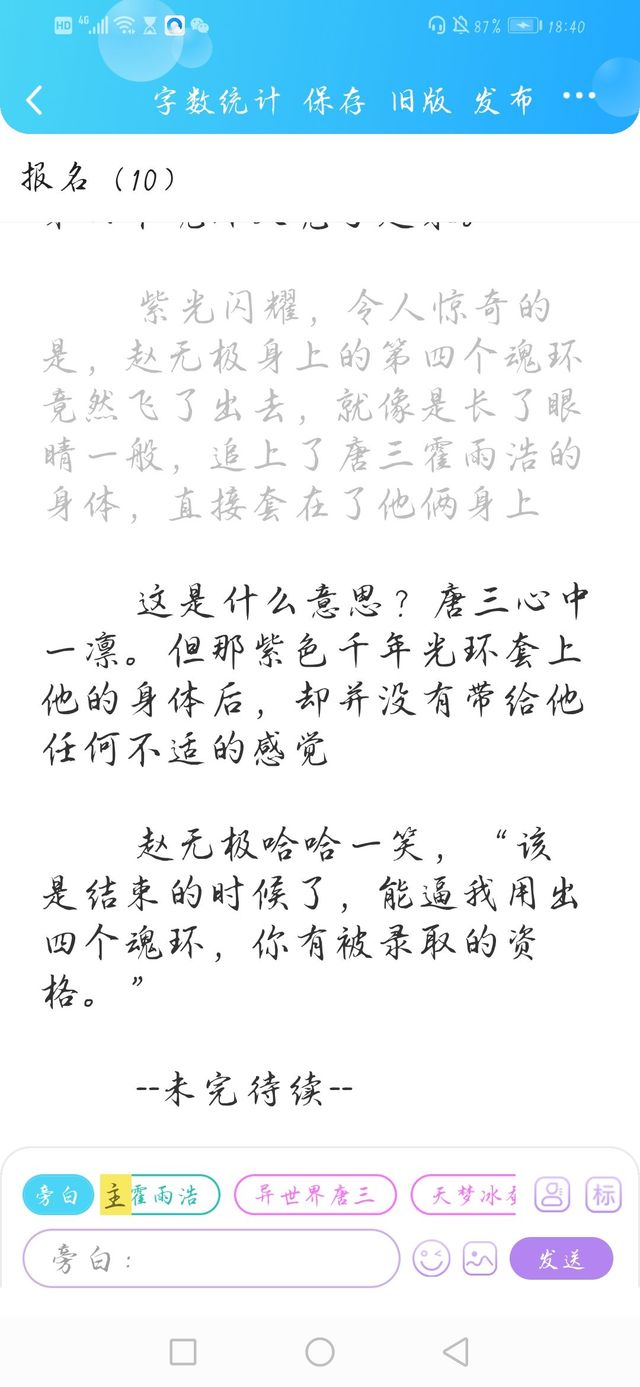 HD 4G 87% 18:40
字数统计 保存 旧版 发布 ...
报名（10）
紫光闪耀，令人惊奇的
是，赵无极身上的第四个魂环
竟然飞了出去，就像是长了眼
睛一般，追上了唐三霍雨浩的
身体，直接套在了他俩身上
这是什么意思？唐三心中
一凛。但那紫色千年光环套上
他的身体后，却并没有带给他
任何不适的感觉
赵无极哈哈一笑，“该
是结束的时候了，能逼我用出
四个魂环，你有被录取的资
格。”
--未完待续--
旁白 主 霍雨浩 异世界唐三 天梦冰 标
旁白： 发送